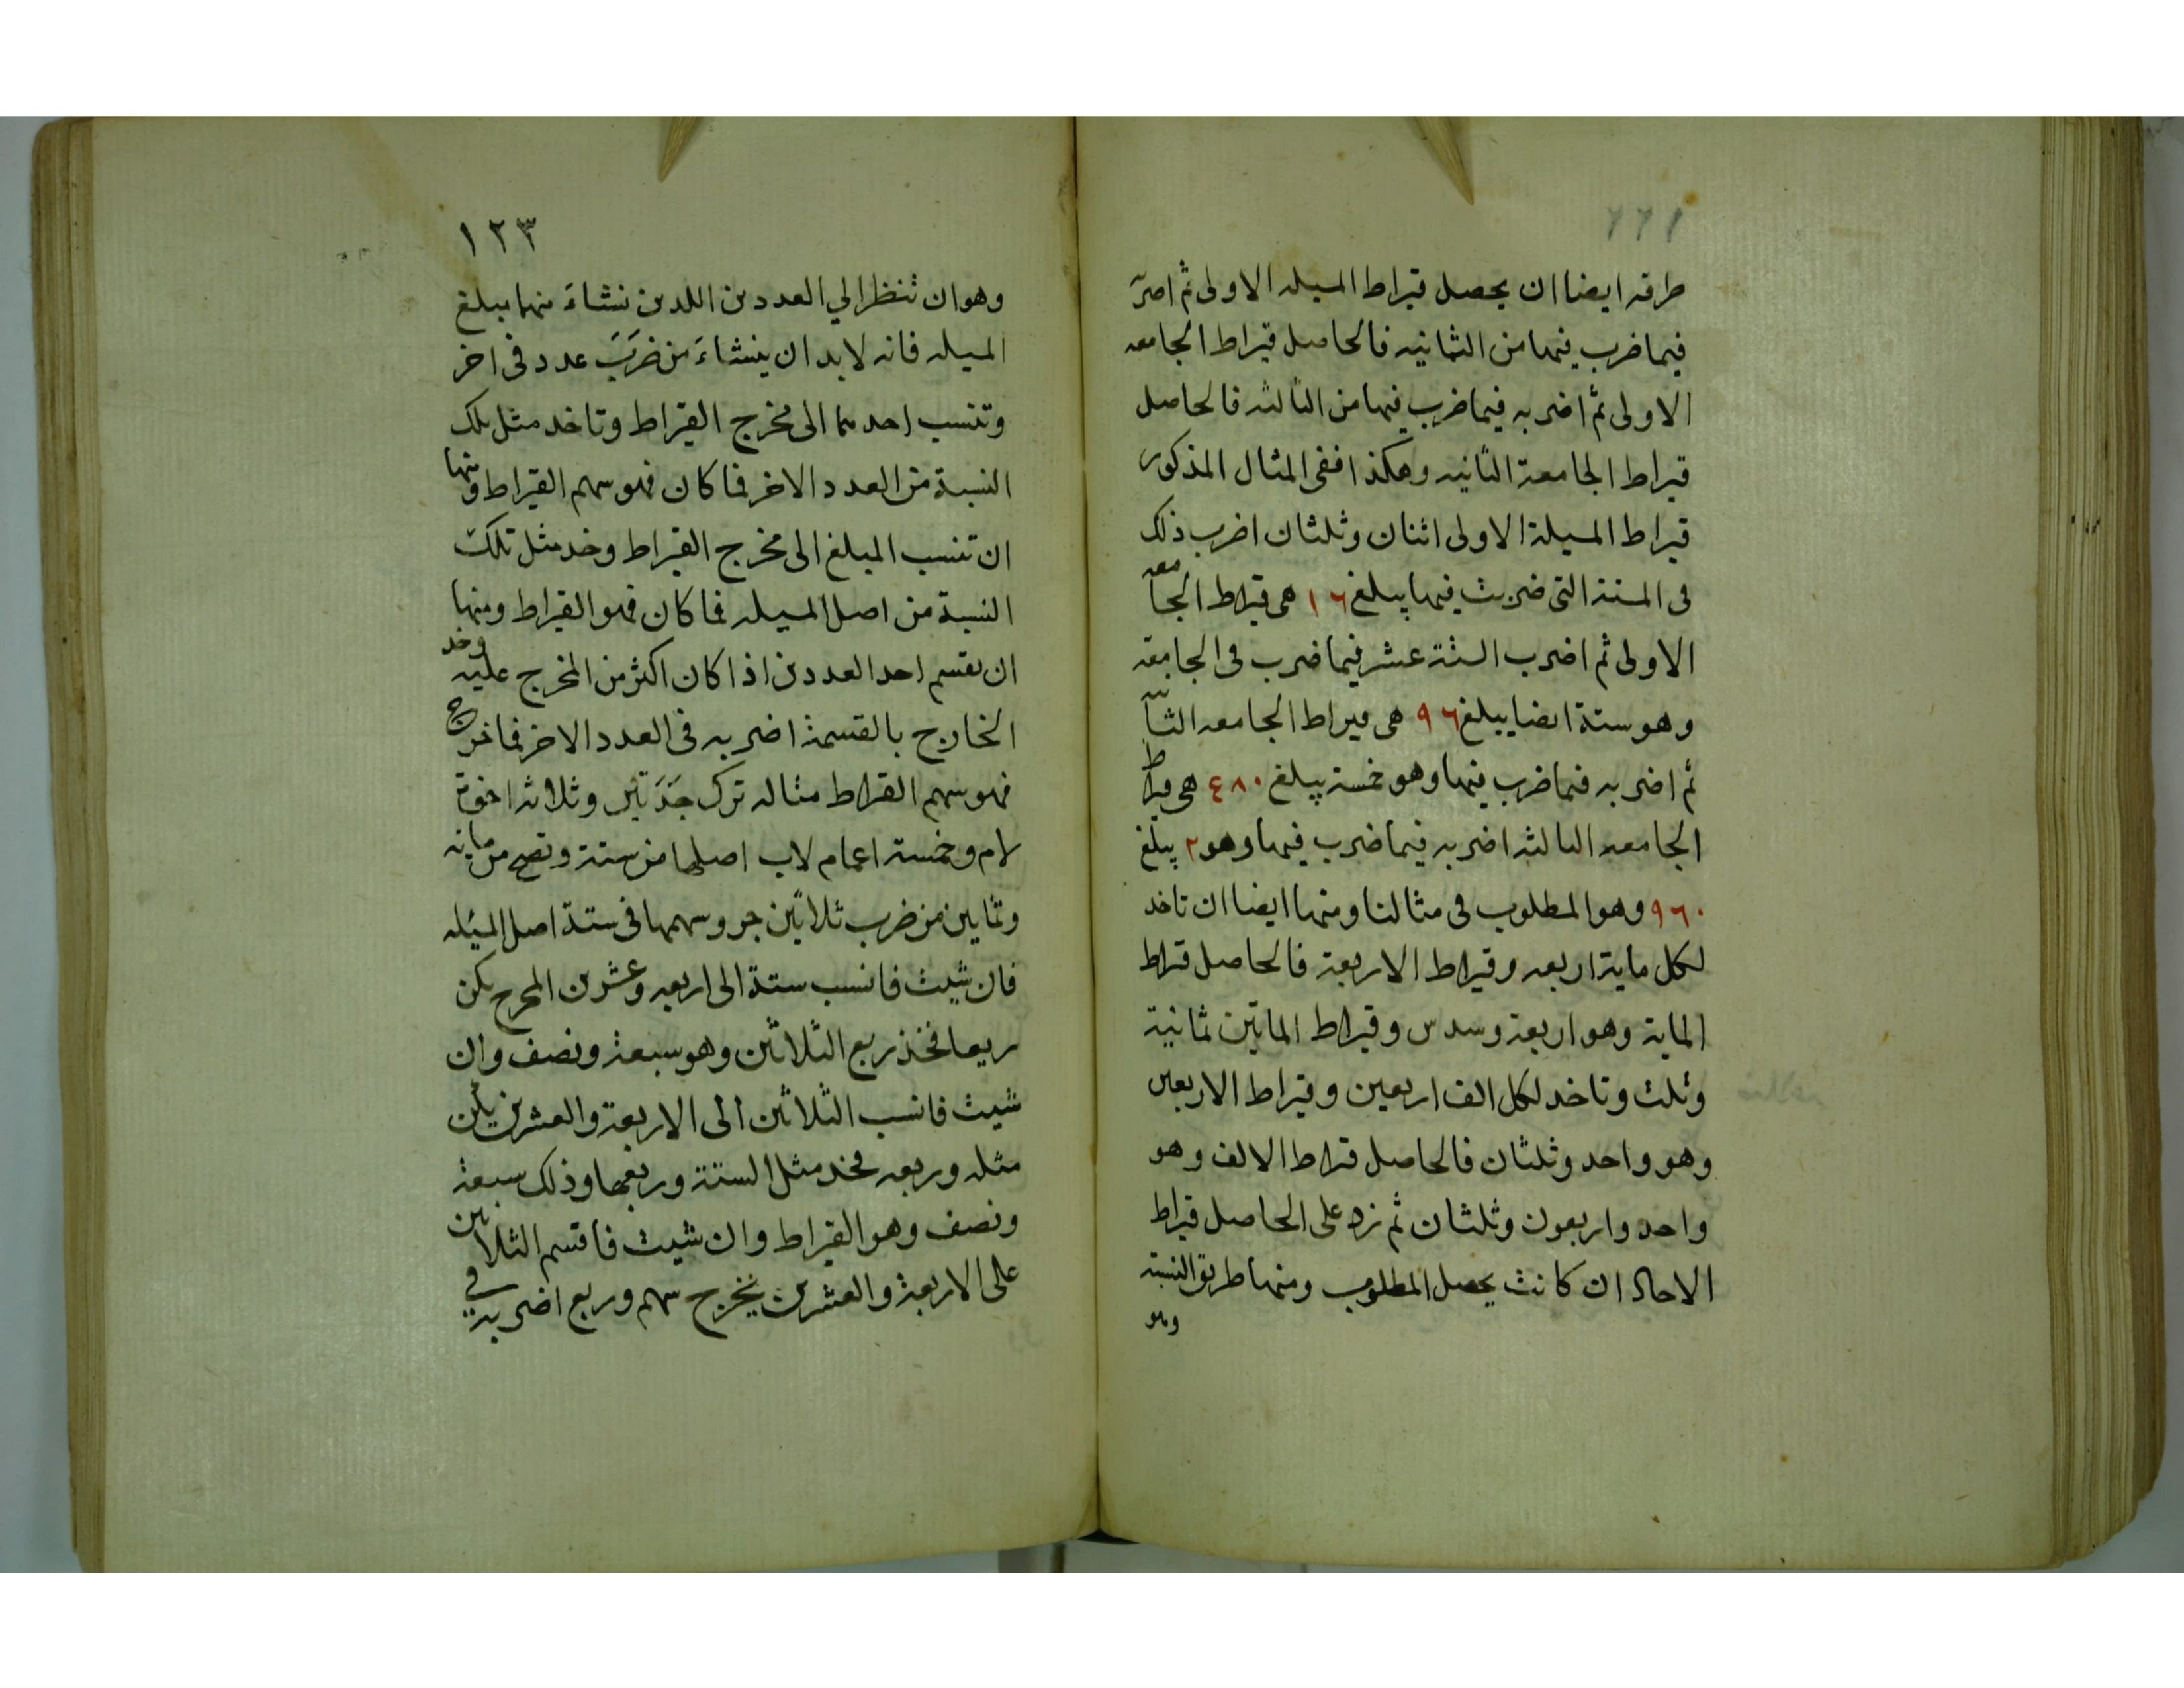 ١٢٢
طرقه ايضا ان يحصل قيراط المسيله الاولى ثم اضربه
فيما ضرب فيها من الثمانيه فالحاصل قيراط الجامعه
الاولى ثم اضربه فيما ضرب فيها من الثالثه فالحاصل
قيراط الجامعة الثانيه وهكذا ففى المثال المذكور
قيراط المسيلة الاولى اثنان وثلثان اضرب ذلك
فى الستة التى ضربت فيها يبلغ ١٦ هى قيراط الجامعه
الاولى ثم اضرب الستة عشر فيما ضرب فى الجامعة
وهو ستة ايضا يبلغ ٩٦ هى قيراط الجامعه الثانيه
ثم اضربه فيما ضرب فيها وهو خمسة يبلغ ٤٨٠ هى قيراط
الجامعه الثالثه اضربه فيما ضرب فيها وهو ٢ يبلغ
٩٦٠ وهو المطلوب فى مثالنا ومنها ايضا ان تاخد
لكل ماية اربعه وقيراط الاربعة فالحاصل قيراط
الماية وهو اربعة وسدس وقيراط المايتين ثمانية
وثلث وتاخد لكل الف اربعين وقيراط الاربعين
وهو واحد وثلثان فالحاصل قيراط الالف وهو
واحد واربعون وثلثان ثم زد على الحاصل قيراط
الاحاد ان كانت يحصل المطلوب ومنها طريق النسبة
وهو
١٢٣
وهو ان تنظر الي العددين اللدين نشاءَ منهما مبلغ
المسيله فانه لابد ان ينشاءَ من ضَربَ عدد فى اخر
وتنسب احدهما الى مخرج القيراط وتاخد مثل تلك
النسبة من العدد الاخر فما كان فهو سهم القيراط ومنها
ان تنسب المبلغ الى مخرج القيراط وخد مثل تلك
النسبة من اصل المسيله فما كان فهو القيراط ومنها
ان تقسم احد العددين اذا كان اكثر من المخرج عليه وخد
الخارج بالقسمة اضربه فى العدد الاخر فما خرج
فهو سهم القيراط مثاله ترك جَدَتَين وثلاثة اخوة
لام وخمسة اعمام لاب اصلها من ستة وتصح من مايه
وثمانين من ضرب ثلاثين جزوسهمها فى ستة اصل المسيله
فان شيت فانسب ستة الى اربعه وعشرين المخرج يكن
ربعا فخذ ربع الثلاثين وهو سبعة ونصف وان
شيت فانسب الثلاثين الى الاربعة والعشرين يكن
مثله وربعه فخد مثل الستة وربعها وذلك سبعة
ونصف وهو القيراط وان شيت فاقسم الثلاثين
على الاربعة والعشرين يخرج سهم وربع اضربه في